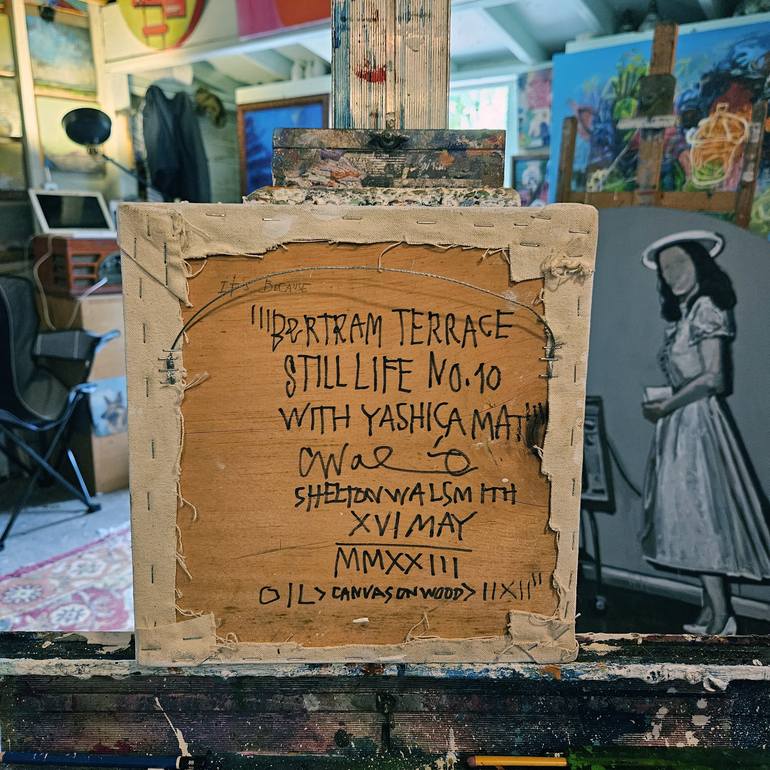 It's Because
"'BERTRAM TERRACE
STILL LIFE No.10
WITH YASHICA MAT'"
SHELTON WALSMITH
XVI MAY
MMXXIII
OIL> CANVAS ON WOOD> 11X11"